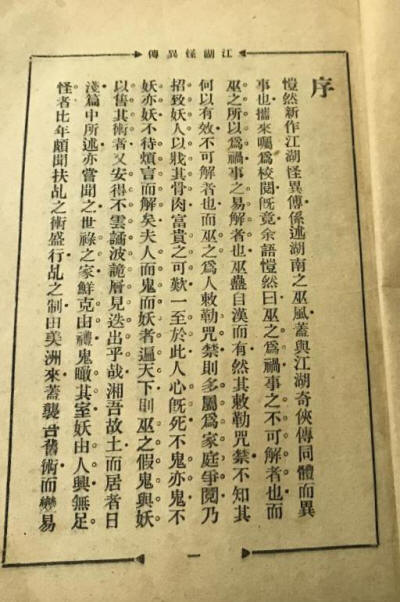 江湖怪異傳
序
愷然新作江湖怪異傳係述湖南之巫風蓋與江湖奇俠傳同體而異
事也攜來囑爲校閱旣竟余語愷然曰巫之爲禍事之不可解者也而
巫之所以爲禍事之易解者也巫蠱自漢而有然其敕勒咒禁不知其
何以有效不可解者也而巫之爲人敕勒咒禁則多屬爲家庭爭鬩乃
招致妖人以戕其骨肉富貴之可歎一至於此人心旣死不鬼亦鬼不
妖亦妖不待煩言而解矣夫人而鬼而妖者遍天下則巫之假鬼與妖
以售其術者又安得不雲譎波詭層見迭出乎哉湘吾故土而居者日
淺篇中所述亦嘗聞之世祿之家鮮克由禮鬼瞰其室妖由人興無足
怪者比年頗聞扶乩之術盛行乩之制田美洲來蓋襲古舊術而變易
一